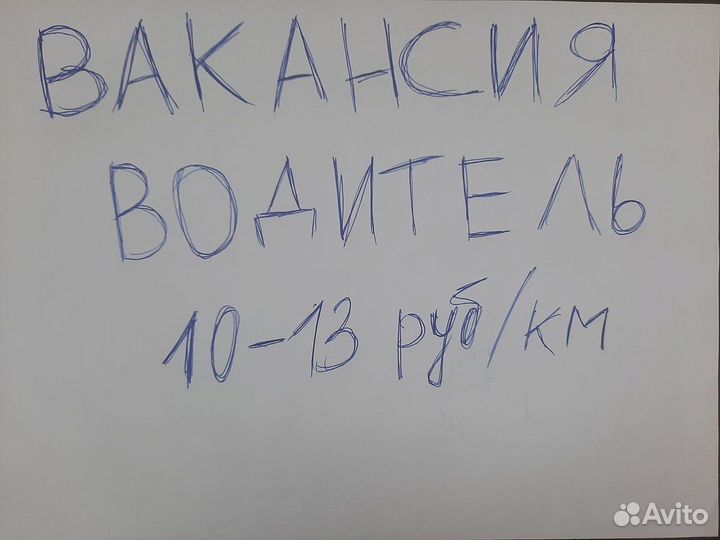 ВАКАНСИЯ
ВОДИТЕЛЬ
10-13 руб/км
Avito